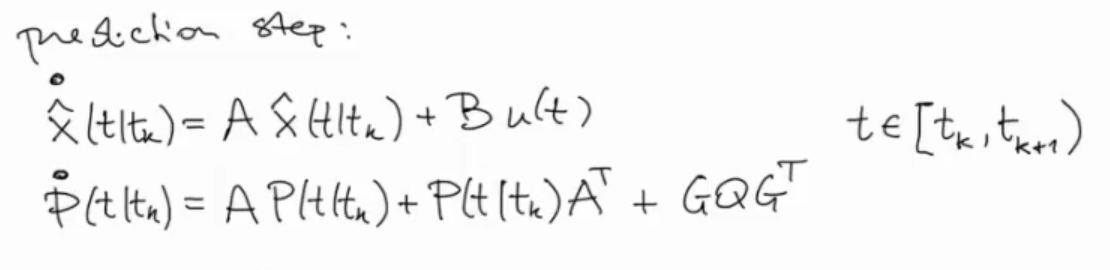 prediction step:
$\dot{\hat{x}}(t|t_k) = A\hat{x}(t|t_k) + Bu(t)$ $t \in [t_k, t_{k+1})$
$\dot{P}(t|t_k) = AP(t|t_k) + P(t|t_k)A^T + GQG^T$